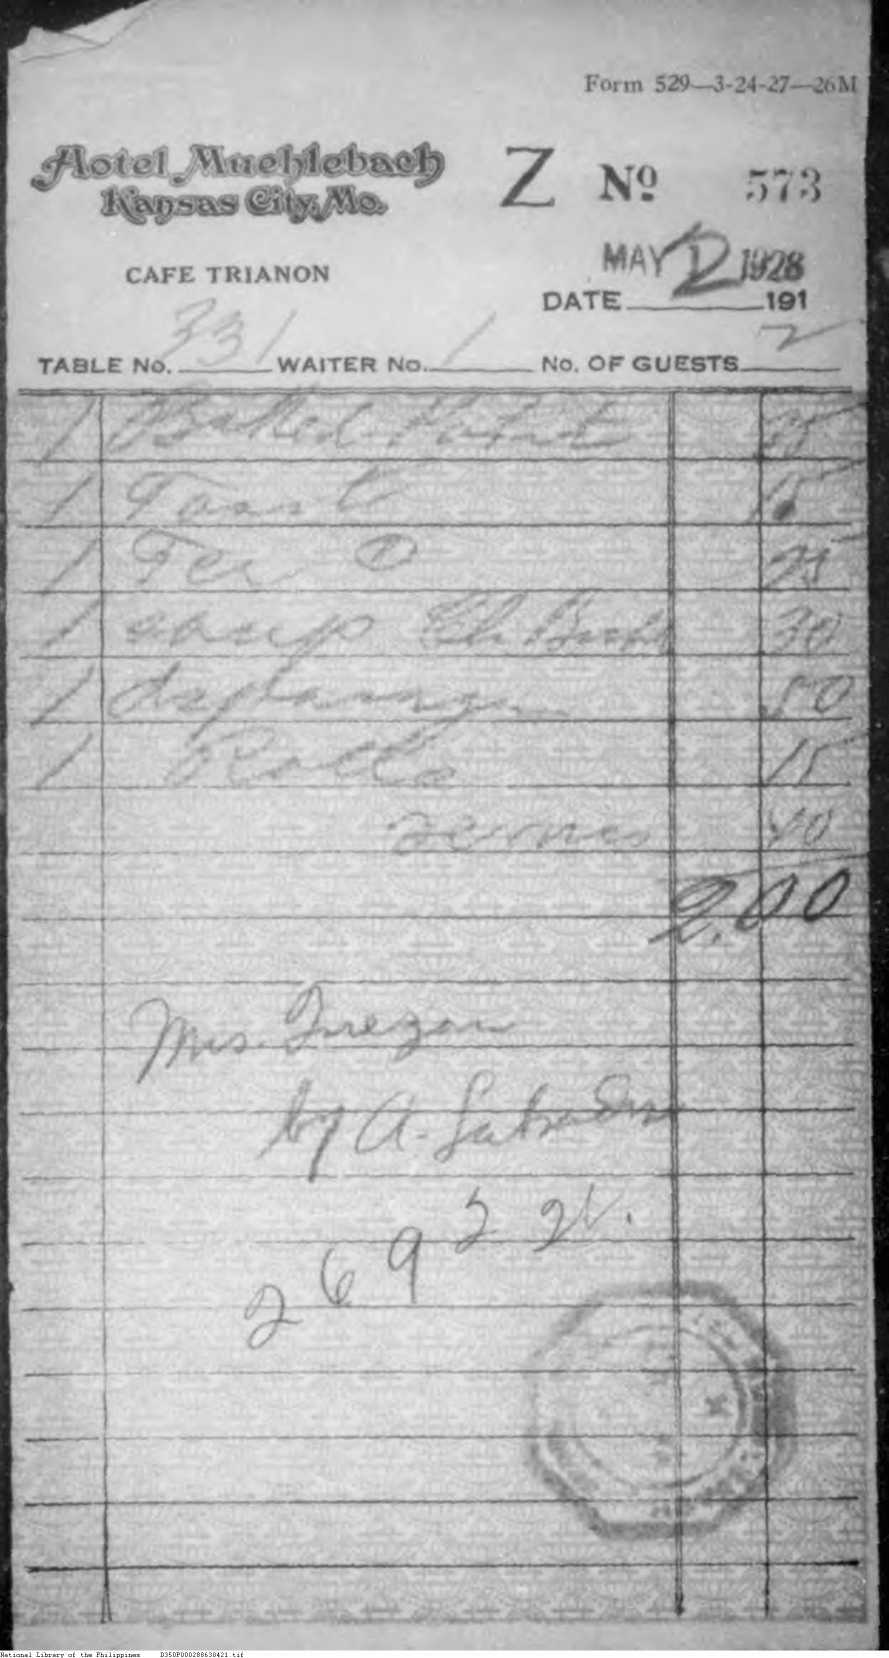 Form 529—3-24-27—26M
Hotel Muehlebach
Kansas City, Mo.
Z Nº 573
CAFE TRIANON
MAY 2 1928
DATE 191
TABLE No. 331 WAITER No. 1 No. OF GUESTS 2
1 Baked Potat 25
1 Toast 15
1 Tea 1 25
1 soup 30
1 Asparagus 50
1 Rolls 15
40
2.00
Mrs.
by A.
2 6 9 2
National Library of the Philippines D350P000288630421.tif